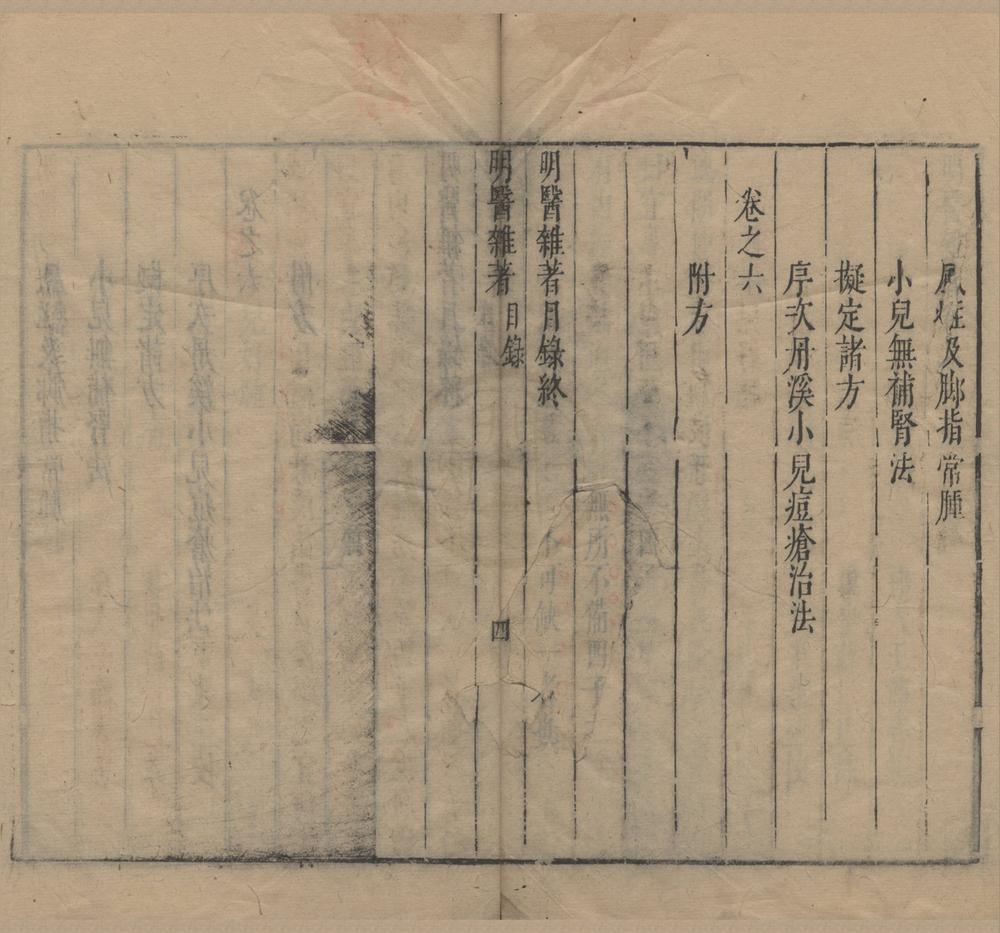 風症及脚指常腫
小兒無補腎法
擬定諸方
序次丹溪小兒痘瘡治法
卷之六
附方
明醫雜著目錄終
明醫雜著
目錄
四